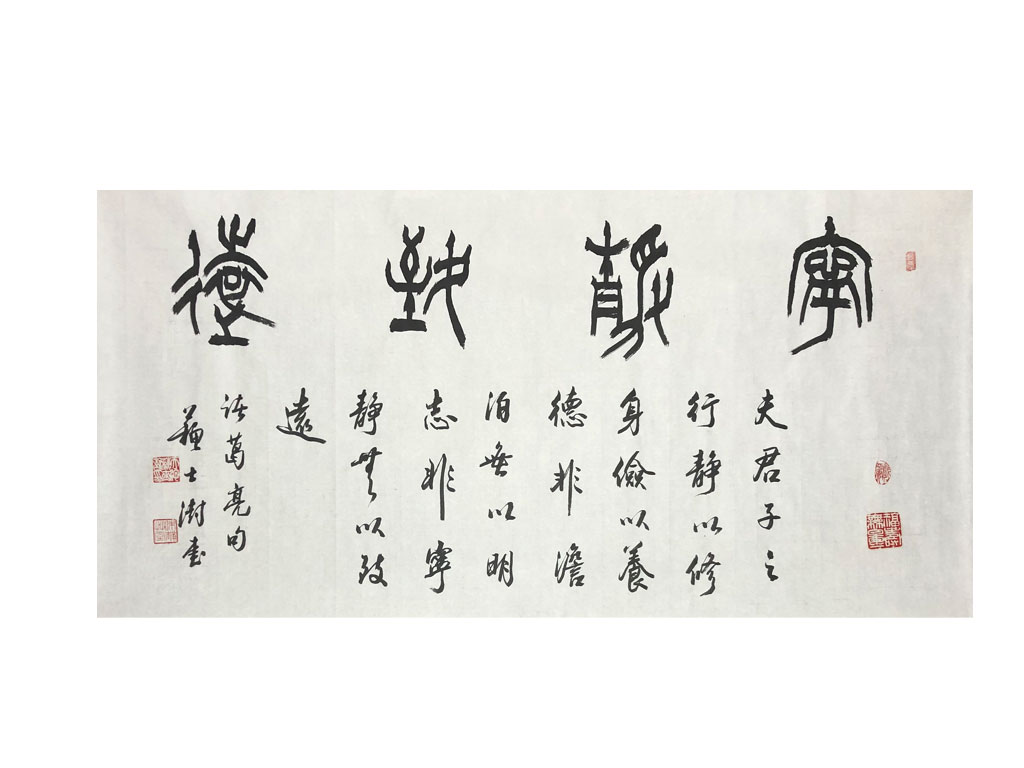 寧靜致遠
夫君子之
行靜以修
身儉以養
德非澹
泊無以明
志非寧
靜無以致
遠
諸葛亮句
蘇士澍書